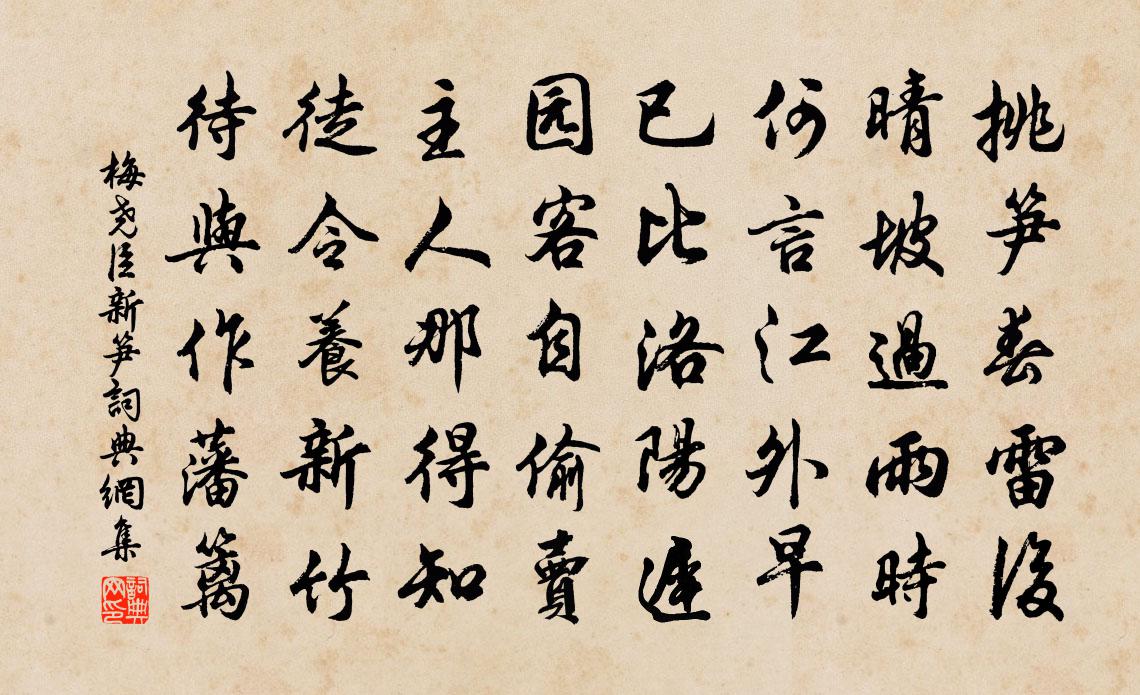 挑笋春雷後
晴坡過雨時
何言江外早
已比洛陽遲
园客自偷賣
主人那得知
徒令養新竹
待與作藩籬
梅尧臣新笋詞典網集
詞典网印